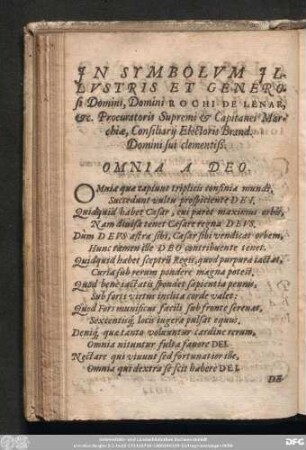 IN SYMBOLVM IL
LVSTRIS ET GENERO
si Domini, Domini ROCHI DE LENAR,
&c. Procuratoris Supremi & Capitanei Mar-
chiæ, Consiliarij Electoris Brand.
Domini sui clementiss.
OMNIA A DEO.
OMnia quæ capiunt triplicis confinia mundi,
Succedunt vultu proficiente DEI.
Quidquid habet Cæsar, cui paret maximus orbis,
Nam divisa tenet Cæsare regna DEVS.
Dum DEVS astra sibi, Cæsar sibi vendicat orbem,
Hunc tamen ille DEO contribuente tenet.
Quidquid habet sceptrū Regis, quod purpura iactat,
Curia sub rerum pondere magna potest.
Quod bene iactatis spondet sapientia pennis,
Sub faris virtus inclita corde valet:
Quod Fors munificus facili sub fronte serenat,
Sexcentisq; locis iugera pulsat equus,
Deniq; quæ tanto voluuntur cardine rerum,
Omnia nituntur fulta favore DEI.
Nectare qui viuunt sed fortunatior ille,
Omnia qui dextra se scit habere DEI.
DE